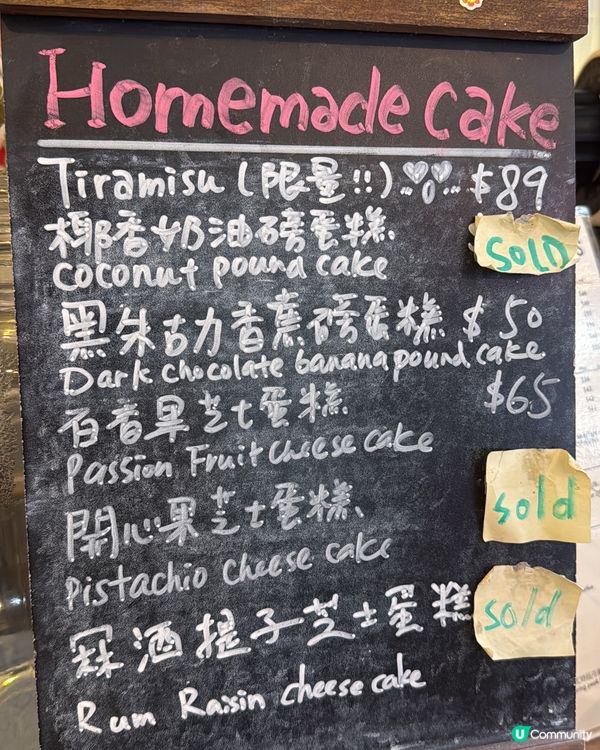 Homemade cake
Tiramisu (限量!!) $89
椰香奶油磅蛋糕 SOLD
coconut pound cake
黑朱古力香蕉磅蛋糕 $50
Dark chocolate banana pound cake
百香果芝士蛋糕 $65
Passion Fruit cheese cake
開心果芝士蛋糕 sold
Pistachio cheese cake
冧酒提子芝士蛋糕 sold
Rum Raisin cheese cake
U Community